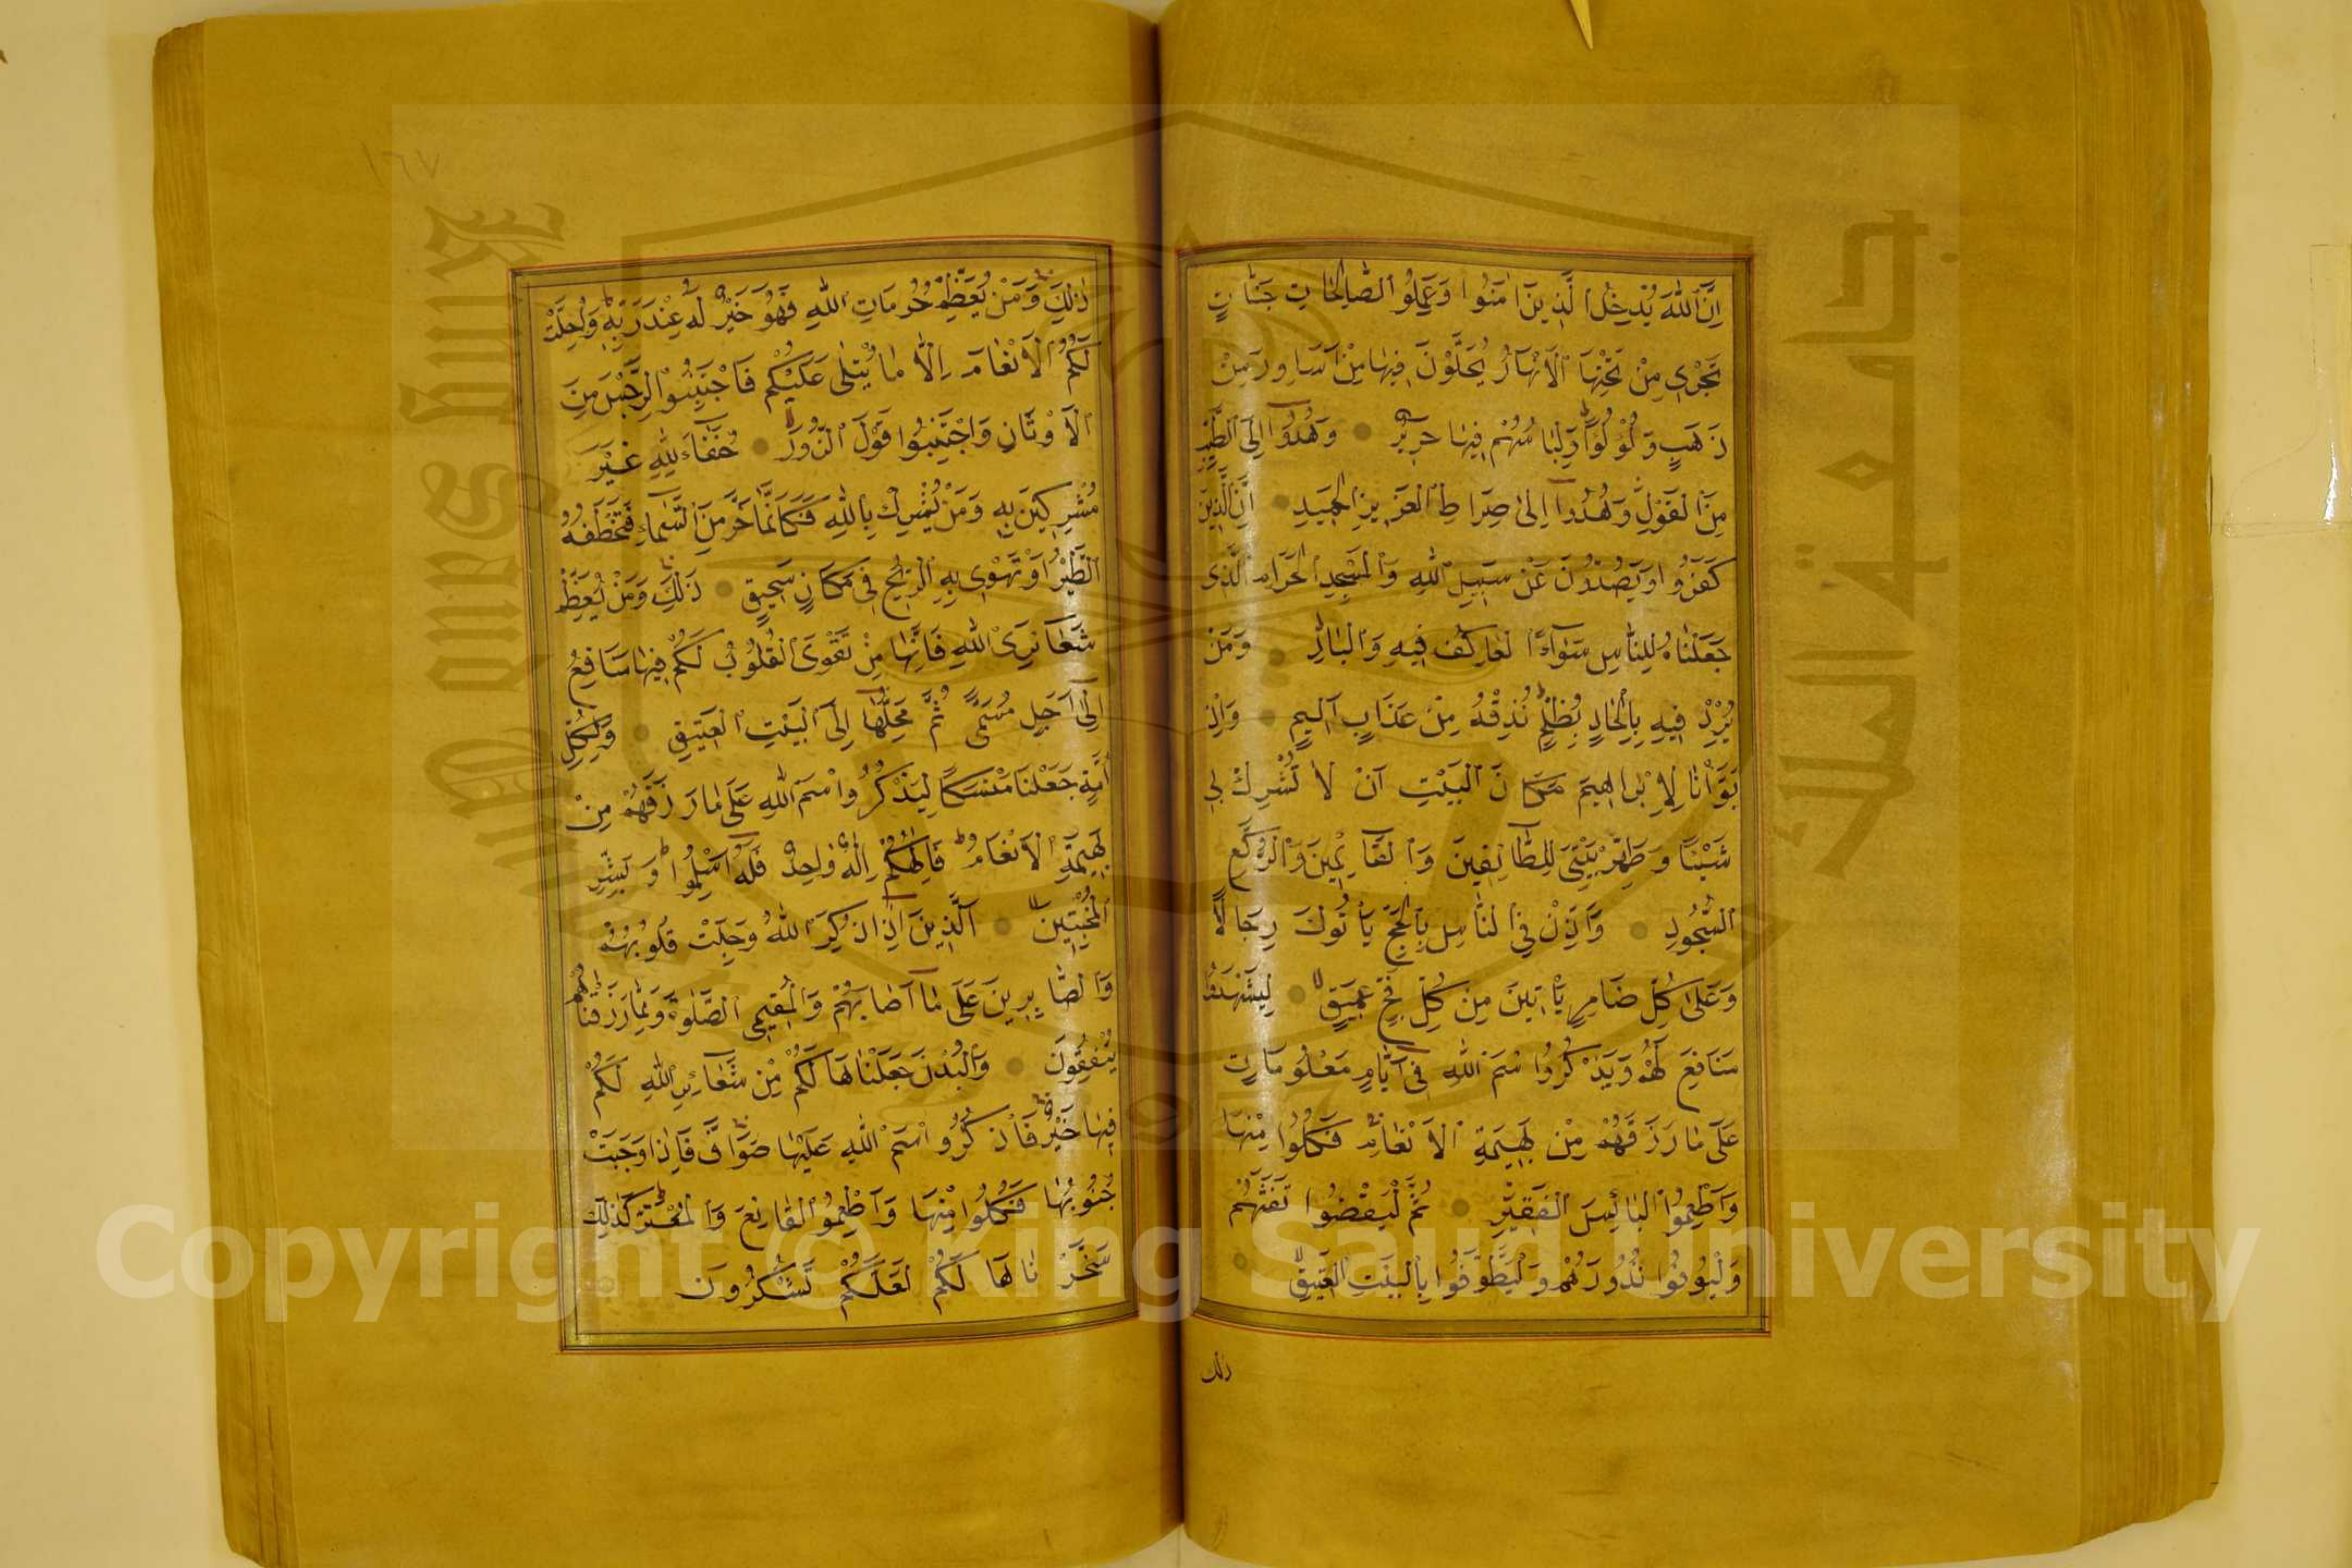 اِنَّ اللّٰهَ يُدْخِلُ الَّذِينَ اٰمَنُوا وَعَمِلُوا الصَّالِحَاتِ جَنَّاتٍ
تَجْرِى مِنْ تَحْتِهَا الْاَنْهَارُ يُحَلَّوْنَ فِيهَا مِنْ اَسَاوِرَ مِنْ
ذَهَبٍ وَلُؤْلُؤًا وَلِبَاسُهُمْ فِيهَا حَرِيرٌ وَهُدُوٓا اِلَى الطَّيِّبِ
مِنَ الْقَوْلِ وَهُدُوٓا اِلٰى صِرَاطِ الْعَزِيزِ الْحَمِيدِ اِنَّ الَّذِينَ
كَفَرُوا وَيَصُدُّونَ عَنْ سَبِيلِ اللّٰهِ وَالْمَسْجِدِ الْحَرَامِ الَّذِى
جَعَلْنَاهُ لِلنَّاسِ سَوَآءً الْعَاكِفُ فِيهِ وَالْبَادِ وَمَنْ
يُرِدْ فِيهِ بِاِلْحَادٍ بِظُلْمٍ نُذِقْهُ مِنْ عَذَابٍ اَلِيمٍ وَاِذْ
بَوَّاْنَا لِاِبْرَاهِيمَ مَكَانَ الْبَيْتِ اَنْ لَا تُشْرِكْ بِى
شَيْئًا وَطَهِّرْ بَيْتِىَ لِلطَّآئِفِينَ وَالْقَآئِمِينَ وَالرُّكَّعِ
السُّجُودِ وَاَذِّنْ فِى النَّاسِ بِالْحَجِّ يَاْتُوكَ رِجَالًا
وَعَلٰى كُلِّ ضَامِرٍ يَاْتِينَ مِنْ كُلِّ فَجٍّ عَمِيقٍ لِيَشْهَدُوا
مَنَافِعَ لَهُمْ وَيَذْكُرُوا اسْمَ اللّٰهِ فِىٓ اَيَّامٍ مَعْلُومَاتٍ
عَلٰى مَا رَزَقَهُمْ مِنْ بَهِيمَةِ الْاَنْعَامِ فَكُلُوا مِنْهَا
وَاَطْعِمُوا الْبَآئِسَ الْفَقِيرَ ثُمَّ لْيَقْضُوا تَفَثَهُمْ
وَلْيُوفُوا نُذُورَهُمْ وَلْيَطَّوَّفُوا بِالْبَيْتِ الْعَتِيقِ
ذلك
١٦٧
ذٰلِكَ وَمَنْ يُعَظِّمْ حُرُمَاتِ اللّٰهِ فَهُوَ خَيْرٌ لَهُ عِنْدَ رَبِّهِ وَاُحِلَّتْ
لَكُمُ الْاَنْعَامُ اِلَّا مَا يُتْلٰى عَلَيْكُمْ فَاجْتَنِبُوا الرِّجْسَ مِنَ
الْاَوْثَانِ وَاجْتَنِبُوا قَوْلَ الزُّورِ حُنَفَآءَ لِلّٰهِ غَيْرَ
مُشْرِكِينَ بِهِ وَمَنْ يُشْرِكْ بِاللّٰهِ فَكَاَنَّمَا خَرَّ مِنَ السَّمَآءِ فَتَخْطَفُهُ
الطَّيْرُ اَوْ تَهْوِى بِهِ الرِّيحُ فِى مَكَانٍ سَحِيقٍ ذٰلِكَ وَمَنْ يُعَظِّمْ
شَعَآئِرَ اللّٰهِ فَاِنَّهَا مِنْ تَقْوَى الْقُلُوبِ لَكُمْ فِيهَا مَنَافِعُ
اِلٰٓى اَجَلٍ مُسَمًّى ثُمَّ مَحِلُّهَآ اِلَى الْبَيْتِ الْعَتِيقِ وَلِكُلِّ
اُمَّةٍ جَعَلْنَا مَنْسَكًا لِيَذْكُرُوا اسْمَ اللّٰهِ عَلٰى مَا رَزَقَهُمْ مِنْ
بَهِيمَةِ الْاَنْعَامِ فَاِلٰهُكُمْ اِلٰهٌ وَاحِدٌ فَلَهُٓ اَسْلِمُوا وَبَشِّرِ
الْمُخْبِتِينَ اَلَّذِينَ اِذَا ذُكِرَ اللّٰهُ وَجِلَتْ قُلُوبُهُمْ
وَالصَّابِرِينَ عَلٰى مَآ اَصَابَهُمْ وَالْمُقِيمِى الصَّلٰوةِ وَمِمَّا رَزَقْنَاهُمْ
يُنْفِقُونَ وَالْبُدْنَ جَعَلْنَاهَا لَكُمْ مِنْ شَعَآئِرِ اللّٰهِ لَكُمْ
فِيهَا خَيْرٌ فَاذْكُرُوا اسْمَ اللّٰهِ عَلَيْهَا صَوَآفَّ فَاِذَا وَجَبَتْ
جُنُوبُهَا فَكُلُوا مِنْهَا وَاَطْعِمُوا الْقَانِعَ وَالْمُعْتَرَّ كَذٰلِكَ
سَخَّرْنَاهَا لَكُمْ لَعَلَّكُمْ تَشْكُرُونَ
Copyright © King Saud University